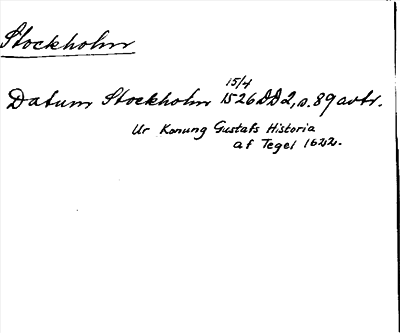 Stockholm
15/4
Datum Stockholm 1526 DD2, s. 89 avtr.
Ur Konung Gustafs Historia
af Tegel 1622.